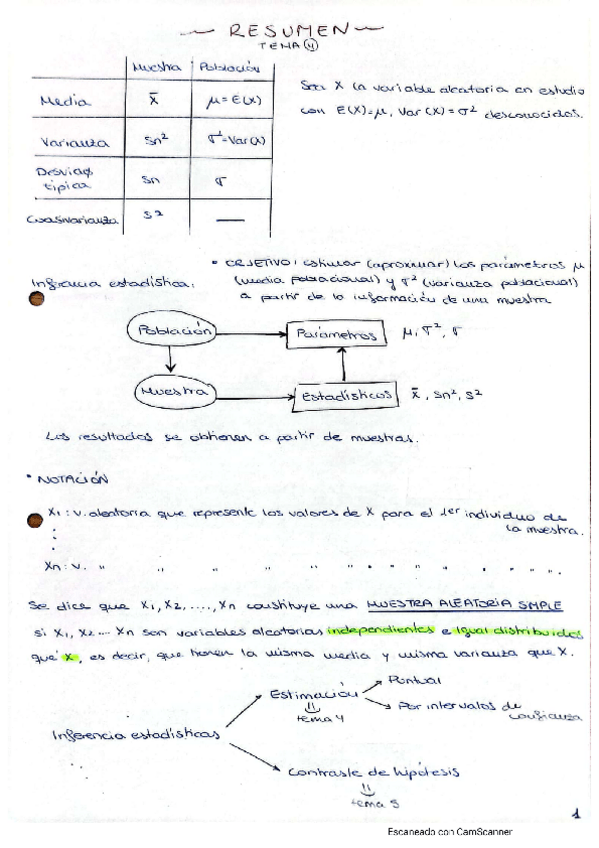 RESUMEN
TEMA 4
Muestra Población
Media x̄ μ = E(X)
Varianza Sn² σ² = Var(X)
Desviaç típica Sn σ
Cuasivarianza S² —
Sea X la variable aleatoria en estudio
con E(X)=μ, Var(X) = σ² desconocidas.
Inferencia estadística:
• OBJETIVO: estimar (aproximar) los parámetros μ
(media poblacional) y σ² (varianza poblacional)
a partir de la información de una muestra
Población → Parámetros μ, σ², σ
Muestra → Estadísticos x̄, Sn², S²
Los resultados se obtienen a partir de muestras.
• NOTACIÓN
X1 : v. aleatoria que represente los valores de X para el 1er individuo de
la muestra.
:
Xn : v. " " " " " " " " " " " "
Se dice que X1, X2, ...., Xn constituye una MUESTRA ALEATORIA SIMPLE
si X1, X2 ... Xn son variables aleatorias independientes e igual distribuidas
que X, es decir, que tienen la misma media y misma varianza que X.
Inferencia estadísticas
Estimación
tema 4
Puntual
Por intervalos de
confianza
Contraste de hipótesis
tema 5
1
Escaneado con CamScanner